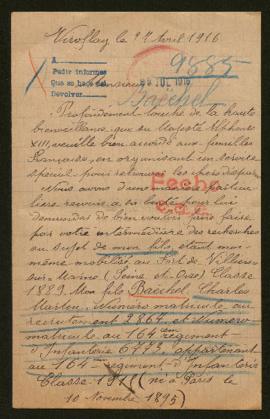 Viroflay le 27 Avril 1916
9885
A
Pedir informes
Que se haga del
Devolver
Monsieur
JUL 1916
Baechel
Profondément touché de la haute
bienveillance, que sa Majesté Alphonse
XIII, veuille bien accorder aux familles
Françaises, en organisant un service
spécial pour retrouver les chers disparus
Nous avons d'une manière particulière
recours à sa bonté pour lui
demander de bien vouloir faire
par votre intermédiaire des recherches
au sujet de mon fils, étant moi-
même mobilisé au Fort de Villiers
sur Marne (Seine et Oise) Classe
1889. Mon fils Baechel, Charles
Martin, Numéro matricule au
recrutement 2867 et Numéro
matricule au 164 régiment
d'Infanterie 6773, appartenant
au 164 régiment d'Infanterie
Classe 1915 (né à Paris le
10 Novembre 1895)
Fecho